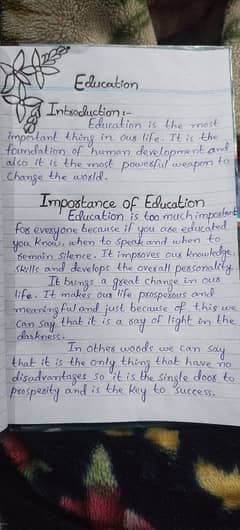 Education
Introduction:-
Education is the most
important thing in our life. It is the
foundation of human development and
also it is the most powerful weapon to
change the world.
Importance of Education
Education is too much important
for everyone because if you are educated
you know, when to speak and when to
remain silence. It improves our knowledge,
skills and develops the overall personality.
It brings a great change in our
life. It makes our life prosperous and
meaningful and just because of this we
can say that it is a ray of light in the
darkness.
In other woods we can say
that it is the only thing that have no
disadvantages so it is the single door to
prosperity and is the key to success.